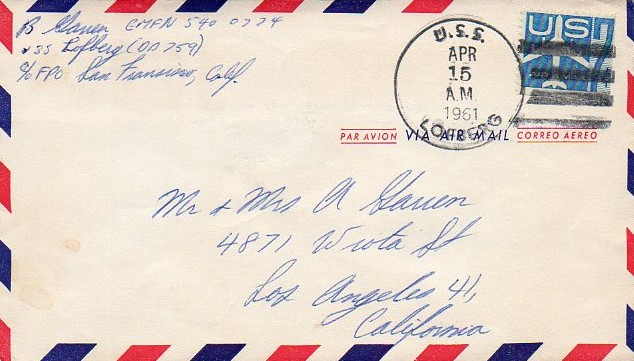 B Garren EMFN 540 07 74
USS Lofberg (DD 759)
c/o FPO San Francisco, Calif.
U.S.S.
APR
15
A.M.
1961
LOFBERG
US
PAR AVION VIA AIR MAIL CORREO AEREO
Mr & Mrs A Garren
4871 Wiota St
Los Angeles 41,
California